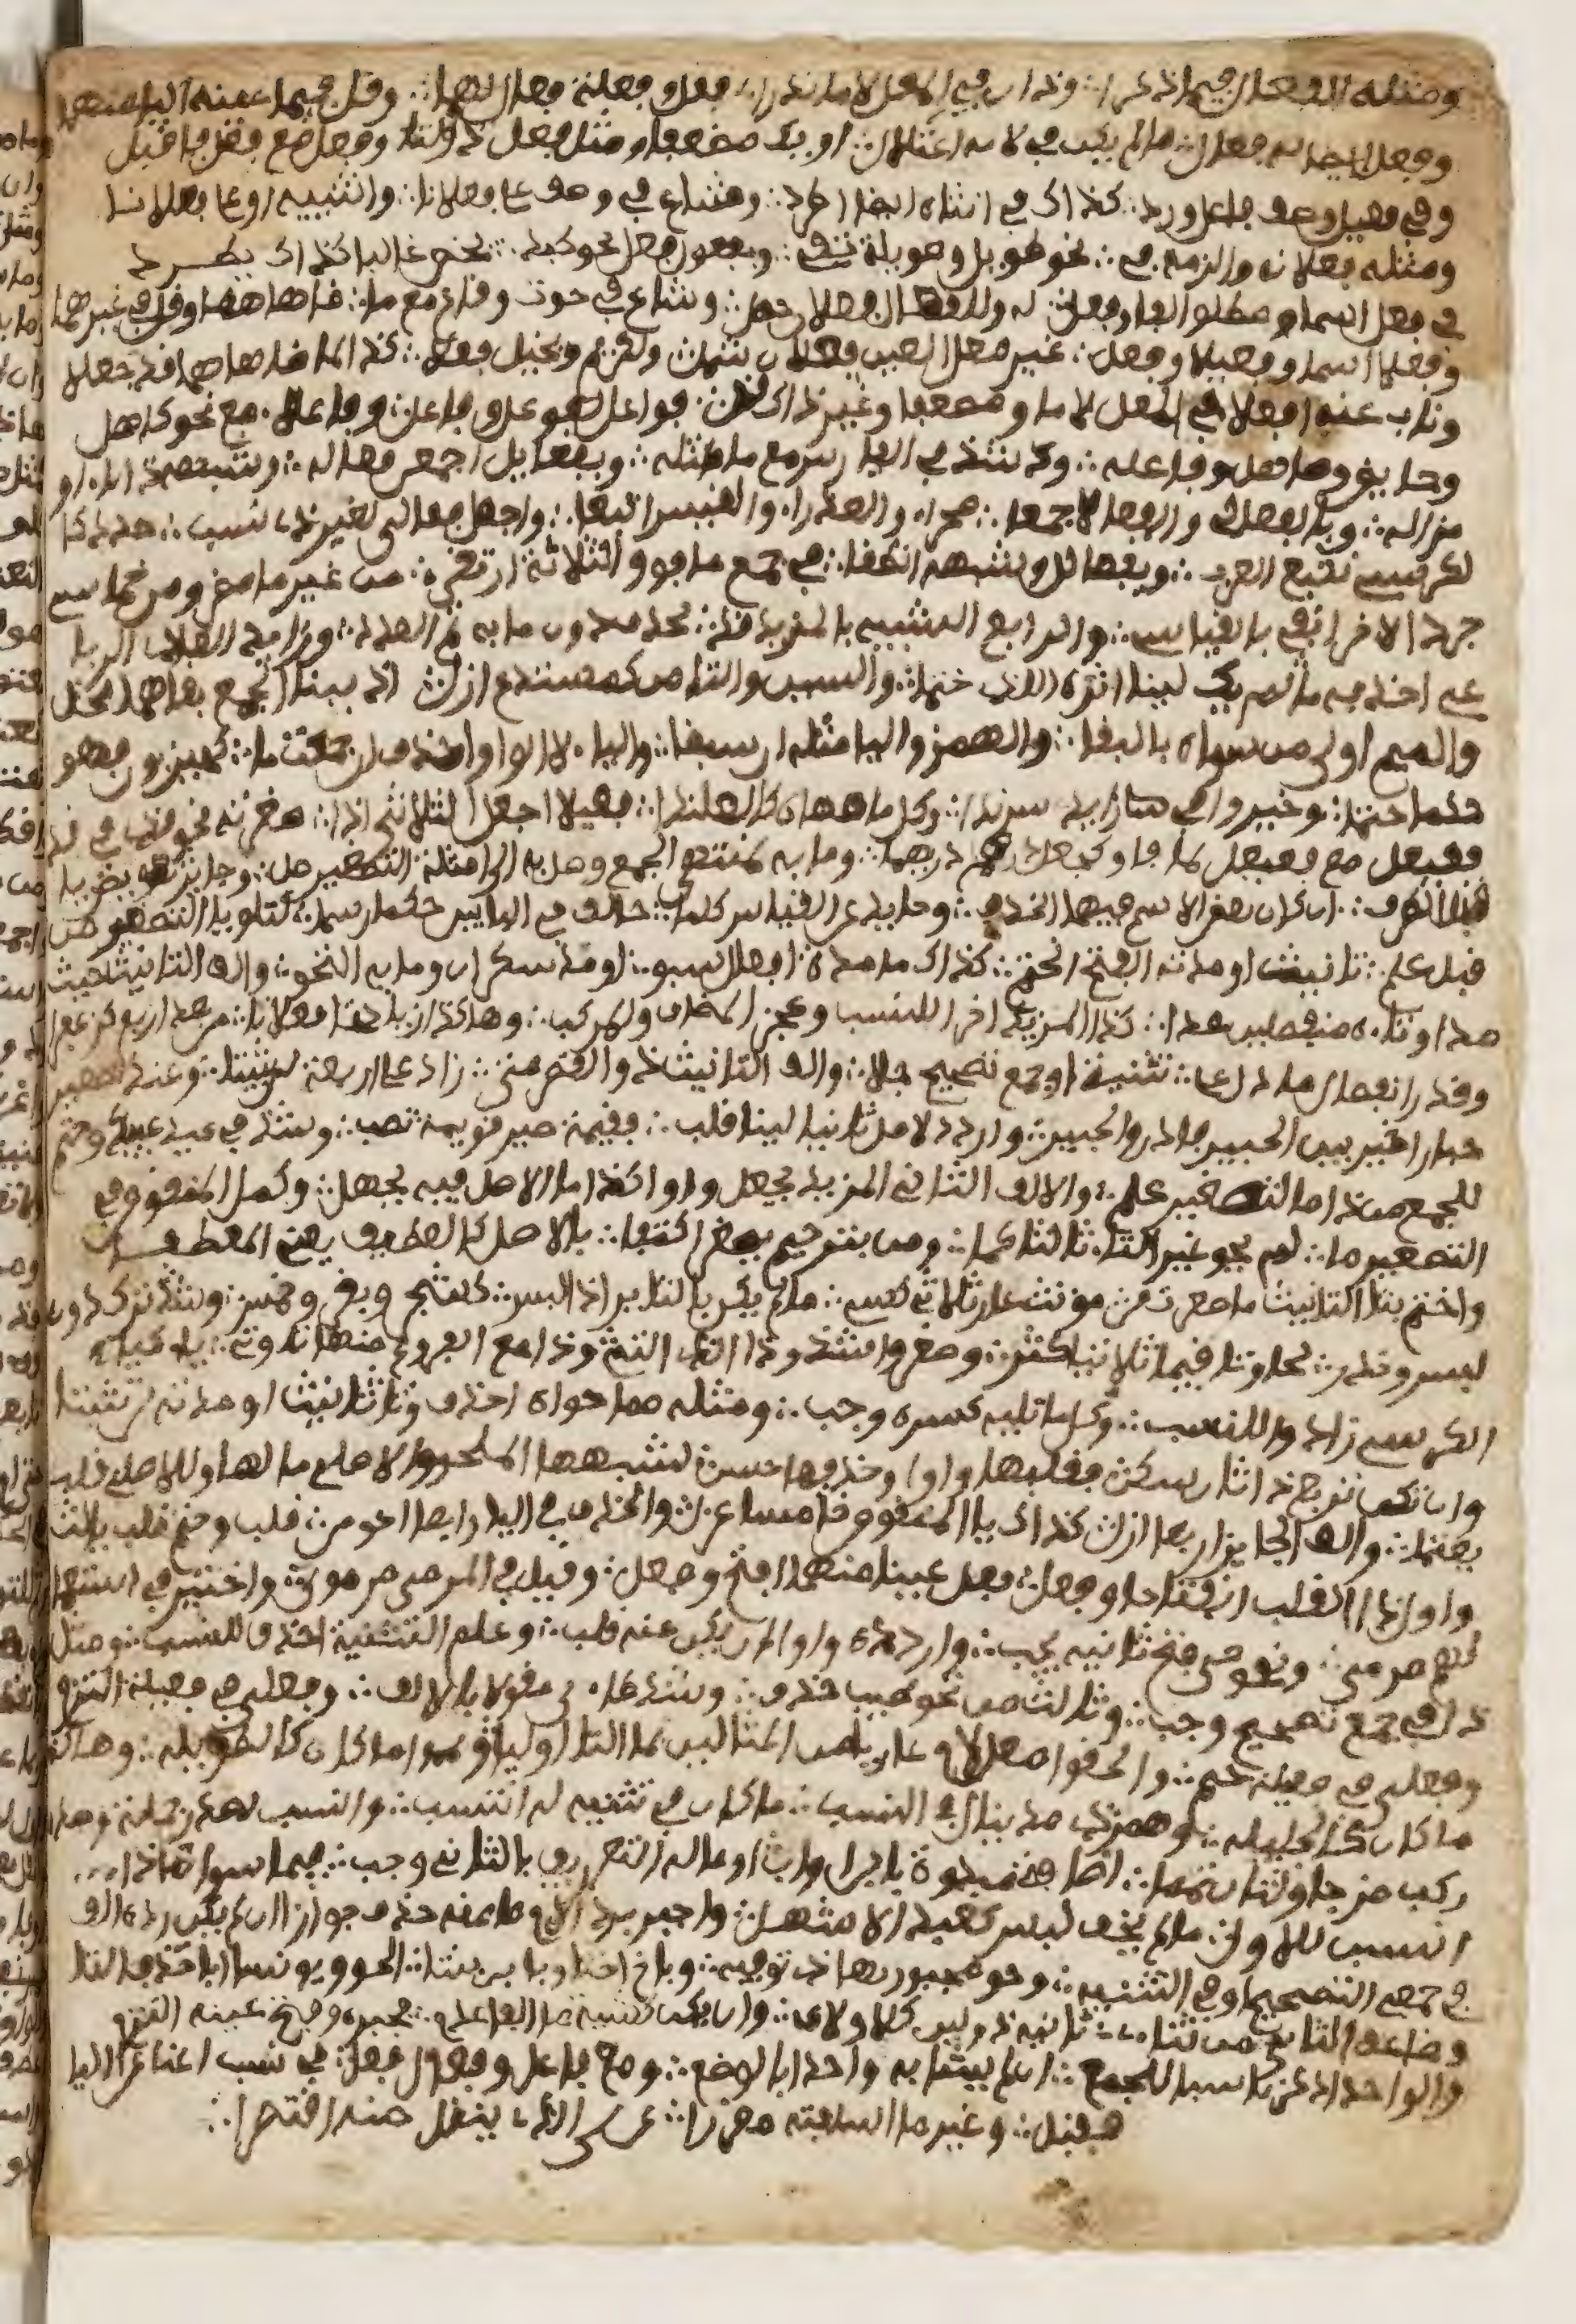 ومثله الفعال فيما ذكرا ∴ وذان في المعل لاما ندرا ∴ فعل وفعلة فعال لهما ∴ وقل فيما عينه اليا منهما
وفعل ايضا له فعال ∴ ما لم يكن في لامه اعتلال ∴ او يك مضعفا ومثل فعل ذو التا وفعل مع فعل فاقبل
وفي فعيل وصف فاعل ورد ∴ كذاك في انثاه ايضا اطرد ∴ وشاع في وصف على فعلانا ∴ وانثييه او على فعلانا
ومثله فعلانة والزمه في ∴ نحو طويل وطويلة تفي ∴ وبفعول فعل نحو كبد ∴ يخص غالبا كذاك يطرد
في فعل اسما مطلق الفا وفعل ∴ له وللفعال فعلان حصل ∴ وشاع في حوت وقاع مع ما ∴ ضاهاهما وقل في غيرهما
وفعلا اسما وفعيلا وفعل ∴ غير معل العين فعلان شمل ∴ ولكريم وبخيل فعلا ∴ كذا لما ضاهاهما قد جعلا
وناب عنه افعلا في المعل لاما ومضعف وغير ذاك قل ∴ فواعل لفوعل وفاعل ∴ وفاعلا ∴ مع نحو كاهل
وحايض وصاهل وفاعله ∴ وشذ في الفارس مع ما ماثله ∴ وبفعايل اجمعن فعاله ∴ وشبهه ذا تا او
مزاله ∴ وبالفعالي والفعالى جمعا ∴ صحراء والعذراء والقيس اتبعا ∴ واجعل فعالي لغير ذي نسب ∴ جدد كا
لكرسي تتبع العرب ∴ وبفعالل وشبهه انطقا ∴ في جمع ما فوق الثلاثة ارتقى ∴ من غير ما مضى ومن خماسي
جرد الاخر انف بالقياس ∴ والرابع الشبيه بالمزيد قد ∴ يحذف دون ما به تم العدد ∴ وزايد العادي الربا
عي احذفه ما لم يك لينا اثره اللذ ختما ∴ والسين والتا من كمستدع ازل ∴ اذ ببنا الجمع بقاهما مخل
والميم اولى من سواه بالبقا ∴ والهمز واليا مثله ان سبقا ∴ واليا لا الواو احذف ان جمعت ما ∴ كحيزبون فهو
حكم حتما ∴ وخيروا في زايدي سرندا ∴ وكل ما ضاهاه كالعلندا ∴ فعيلا اجعل الثلاثي اذا ∴ صغرته نحو قذي في قذا
فعيعل مع فعيعيل لما فاق كجعل درهم دريهما ∴ وما به لمنتهى الجمع وصل به الى امثلة التصغير صل ∴ وجايز تعويض يا
قبل الطرف ∴ ان كان بعض الاسم فيهما انحذف ∴ وحايد عن القياس كلما ∴ خالف في البابين حكما رسما ∴ لتلو يا التصغير من
قبل علم ∴ تانيث او مدته الفتح انحتم ∴ كذاك ما مدة افعال سبق ∴ او مد سكران وما به التحق ∴ والف التانيث حيث
مدا وتاوه منفصلين عدا ∴ كذا المزيد اخرا للنسب وعجز المضاف والمركب ∴ وهكذا زيادتا فعلانا ∴ من بعد اربع كزعفرا
وقدر انفصال ما دل على ∴ تثنية او جمع تصحيح جلا ∴ والف التانيث ذو القصر متى ∴ زاد على اربعة لن يثبتا ∴ وعند تصغير
حبارى خير بين الحبيرى فادر والحبير ∴ واردد لاصل ثانيا لينا قلب ∴ فقيمة صير قويمة تصب ∴ وشذ في عيد عييد وحتم
للجمع من ذا ما لتصغير علم ∴ والالف الثاني المزيد يجعل واوا كذا ما الاصل فيه يجهل ∴ وكمل المنقوص في
التصغير ما ∴ لم يحو غير التا ثالثا كما ∴ ومن بترخيم يصغر اكتفا ∴ بالاصل كالعطيف يعني المعطفا
واختم بتا التانيث ما صغرت من ∴ مونث عار ثلاثي كسن ∴ ما لم يكن بالتا يرى ذا لبس ∴ كشجر وبقر وخمس ∴ وشذ ترك دون
لبس وندر ∴ لحاق تا فيما ثلاثيا كثر ∴ وصغروا شذوذا الذي التي ∴ وذا مع الفروع منها تا وتي ∴ ياء كياء
الكرسي زادوا للنسب ∴ وكل ما تليه كسره وجب ∴ ومثله مما حواه احذف وتا تانيث او مدته لا تثبتا
وان تكن تربع ذا ثان سكن فقلبها واوا وحذفها حسن ∴ لشبهها الملحق والاصلي ما لها وللاصلي قلب
يعتما ∴ والالف الجايز اربعا ازل ∴ كذاك يا المنقوص خامسا عزل ∴ والحذف في اليا رابعا احق من ∴ قلب وحتم قلب ثالث
واول ذا القلب انفتاحا وفعل ∴ وفعل عينهما افتح وفعل ∴ وقيل في المرمي مرموي ∴ واختير في استعما
لهم مرمي ∴ ونحو حي فتح ثانيه يجب ∴ واردده واوا ان يكن عنه قلب ∴ وعلم التثنية احذف للنسب ∴ ومثل
ذا في جمع تصحيح وجب ∴ وثالث من نحو طيب حذف ∴ وشذ طاءي مقولا بالالف ∴ وفعلي في فعيلة التزم
وفعلي في فعيلة حتم ∴ والحقوا معل لام عريا من المثالين بما التا اوليا ∴ وتمموا ما كان كالطويله ∴ وهكذا
ما كان كالجليله ∴ وهمز ذي مد ينال في النسب ∴ ما كان في تثنيه له انتسب ∴ وانسب لصدر جملة وصدر ما
ركب مزجا ولثان تمما ∴ اضافة مبدوة بابن او اب ∴ او ما له التعريف بالثاني وجب ∴ فيما سوى هذا
انسبن للاول ∴ ما لم يخف لبس كعبد الاشهل ∴ واجبر برد اللام ما منه حذف جوازا ان لم يكن رده الف
في جمعي التصحيح او في التثنيه ∴ وحق مجبور بهذي توفيه ∴ وباخ اختا وبابن بنتا ∴ الحق ويونس ابا حذف التا
وضاعف الثاني من ثناءي ∴ ثانيه ذو لين كلا ولاءي ∴ وان يكن كشية ما الفا عدم ∴ فجبره وفتح عينه التزم
والواحد اذكر ناسبا للجمع ∴ ان لم يشابه واحدا بالوضع ∴ ومع فاعل وفعال فعل ∴ في نسب اغنا عن اليا
فقبل ∴ وغير ما اسلفته مقررا ∴ على الذي ينقل منه اقتصرا ∴